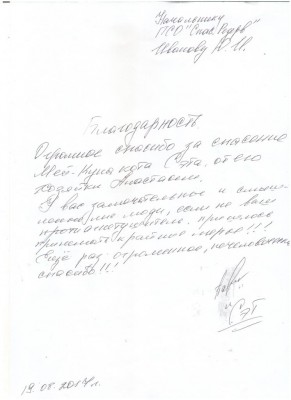 Начальнику
ПСО "Спас Резерв"
Иванову Ю.И.
Благодарность
Огромное спасибо за спасение
Мей-Куна кота Сэта, от его
хозяйки Анастасии.
У вас замечательное и
люди, если не ваш
пришлось
принимать крайние меры!!!
Ещё раз огроменное, нечеловеческое
спасибо!!!
"Сэт"
19.08.2017г.